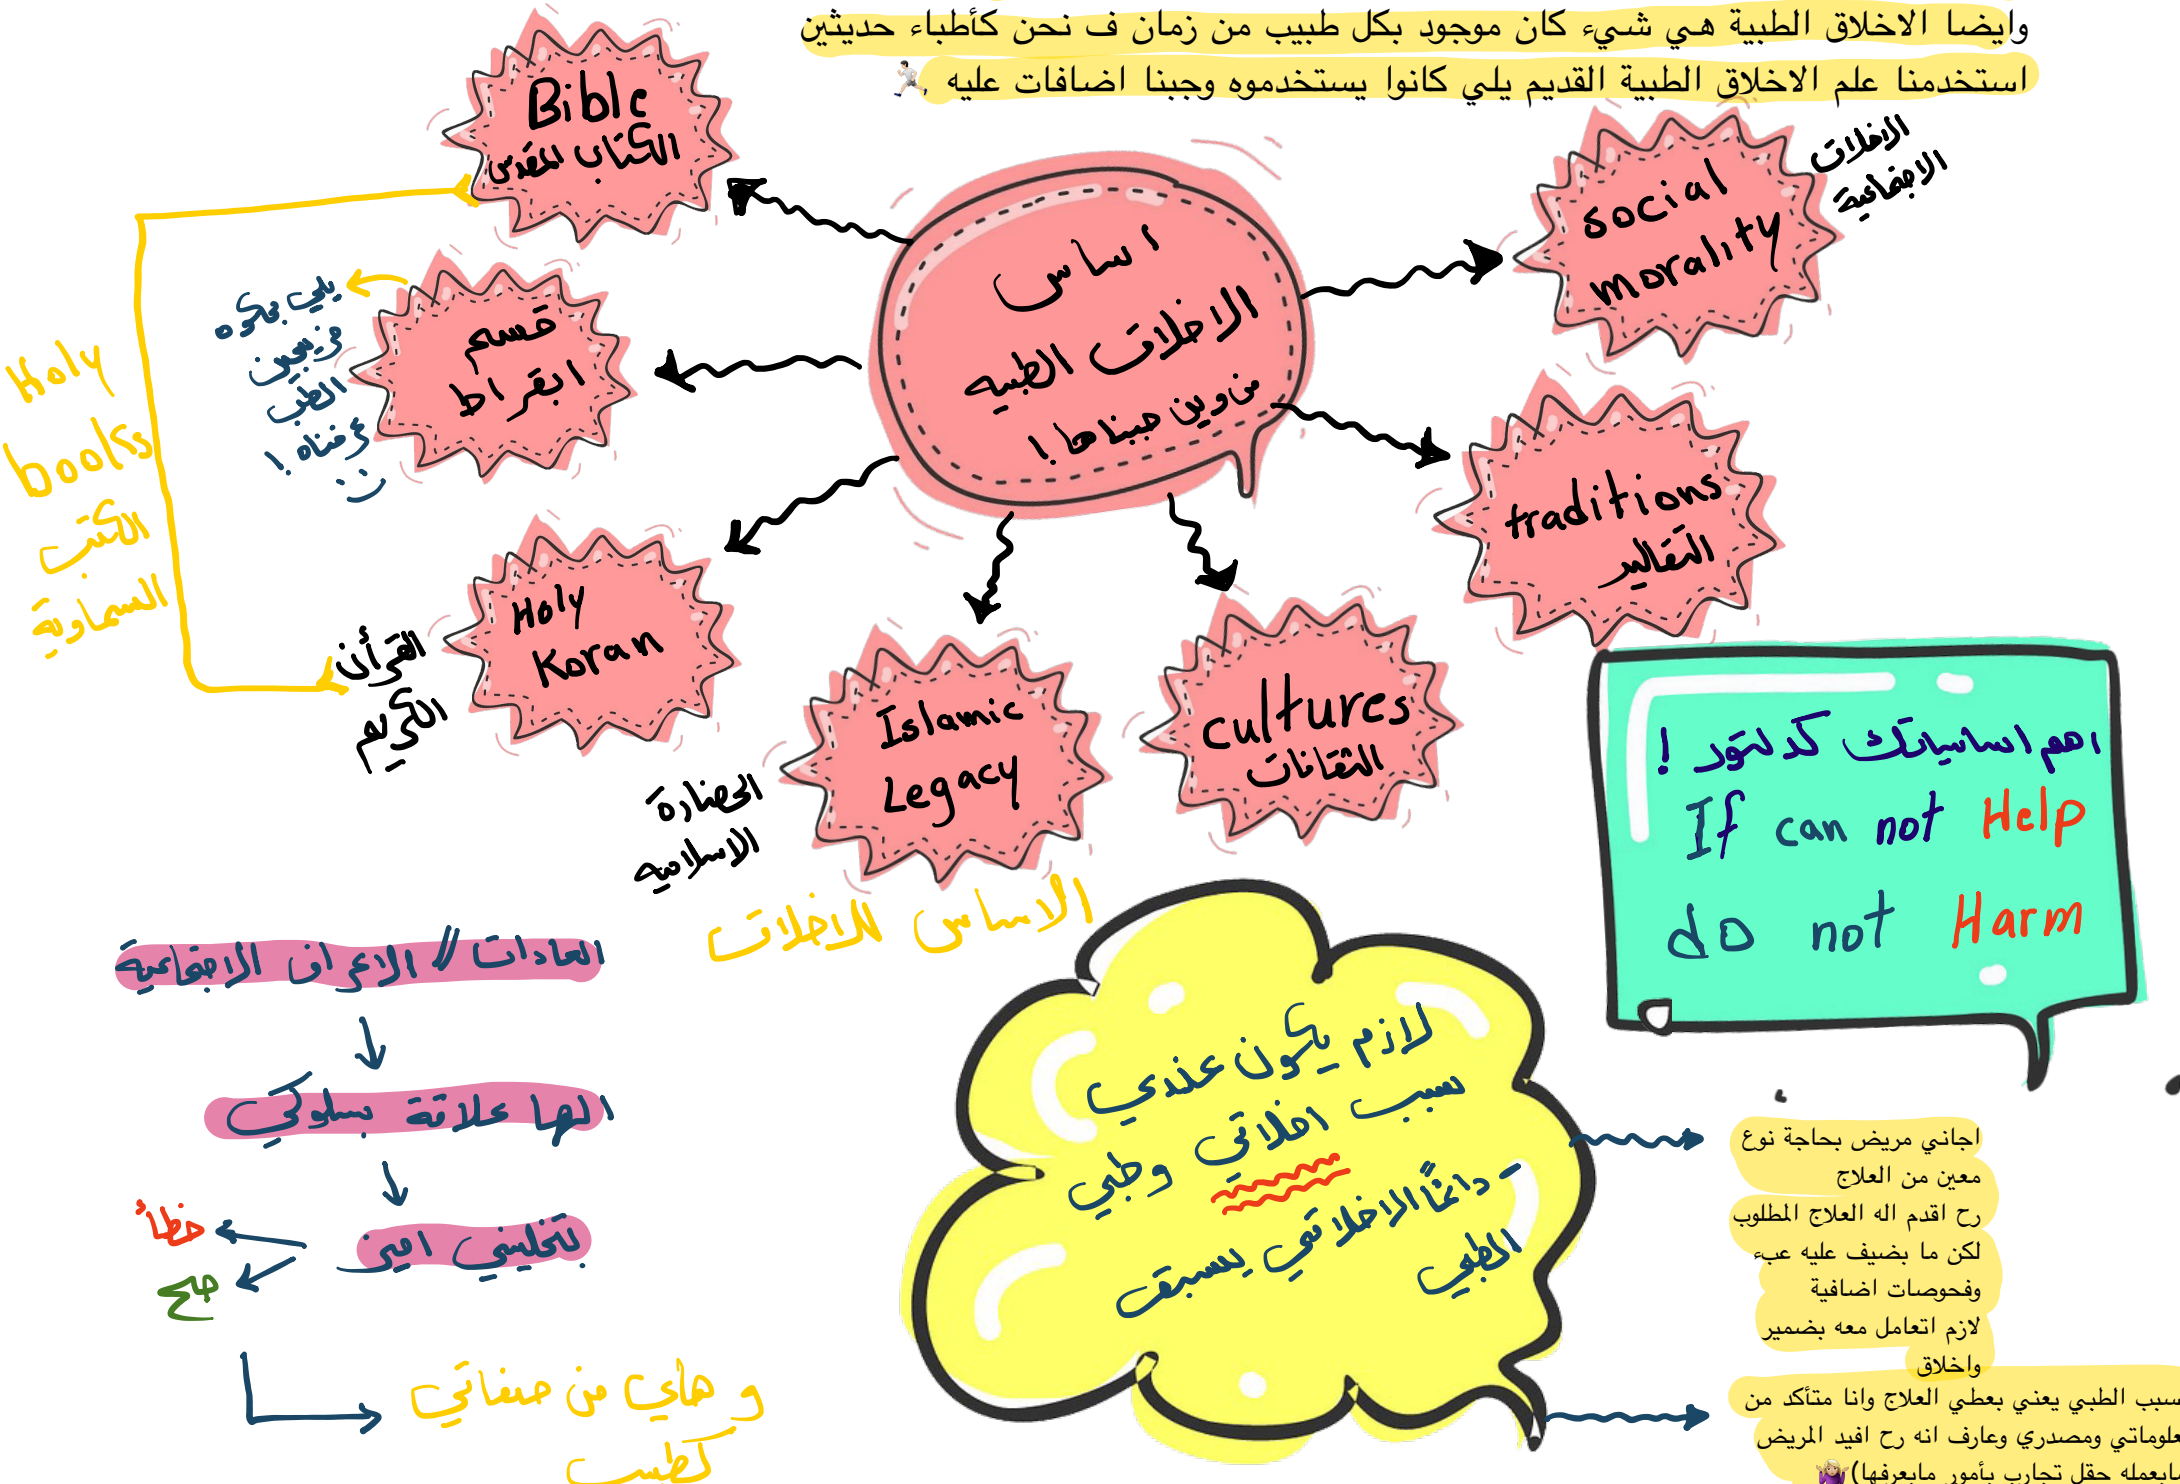 وايضا الاخلاق الطبية هي شيء كان موجود بكل طبيب من زمان ف نحن كأطباء حديثين
استخدمنا علم الاخلاق الطبية القديم يلي كانوا يستخدموه وجبنا اضافات عليه
اساس
الاخلاق الطبيه
من وين جبناها !
Bible
الكتاب المقدس
قسم
ابقراط
يلي بحكوه
خريجين
الطب
عرفناه !
Holy
Koran
القرأن
الكريم
Holy
books
الكتب
السماوية
Islamic
Legacy
الحضارة
الاسلاميه
cultures
الثقافات
traditions
التقاليد
social
morality
الاخلاق
الاجتماعية
الاساس للاخلاق
اهم اساسياتك كدكتور !
If can not Help
do not Harm
العادات // الاعراف الاجتماعية
الها علاقة بسلوكي
بتخليني اميز
خطأ
صح
و هاي من صفاتي
كطبيب
لازم يكون عندي
سبب اخلاقي وطبي
- دائمًا الاخلاقي يسبق
الطبي
اجاني مريض بحاجة نوع
معين من العلاج
رح اقدم اله العلاج المطلوب
لكن ما بضيف عليه عبء
وفحوصات اضافية
لازم اتعامل معه بضمير
واخلاق
سبب الطبي يعني بعطي العلاج وانا متأكد من
علوماتي ومصدري وعارف انه رح افيد المريض
مابعمله حقل تجارب بأمور مابعرفها)